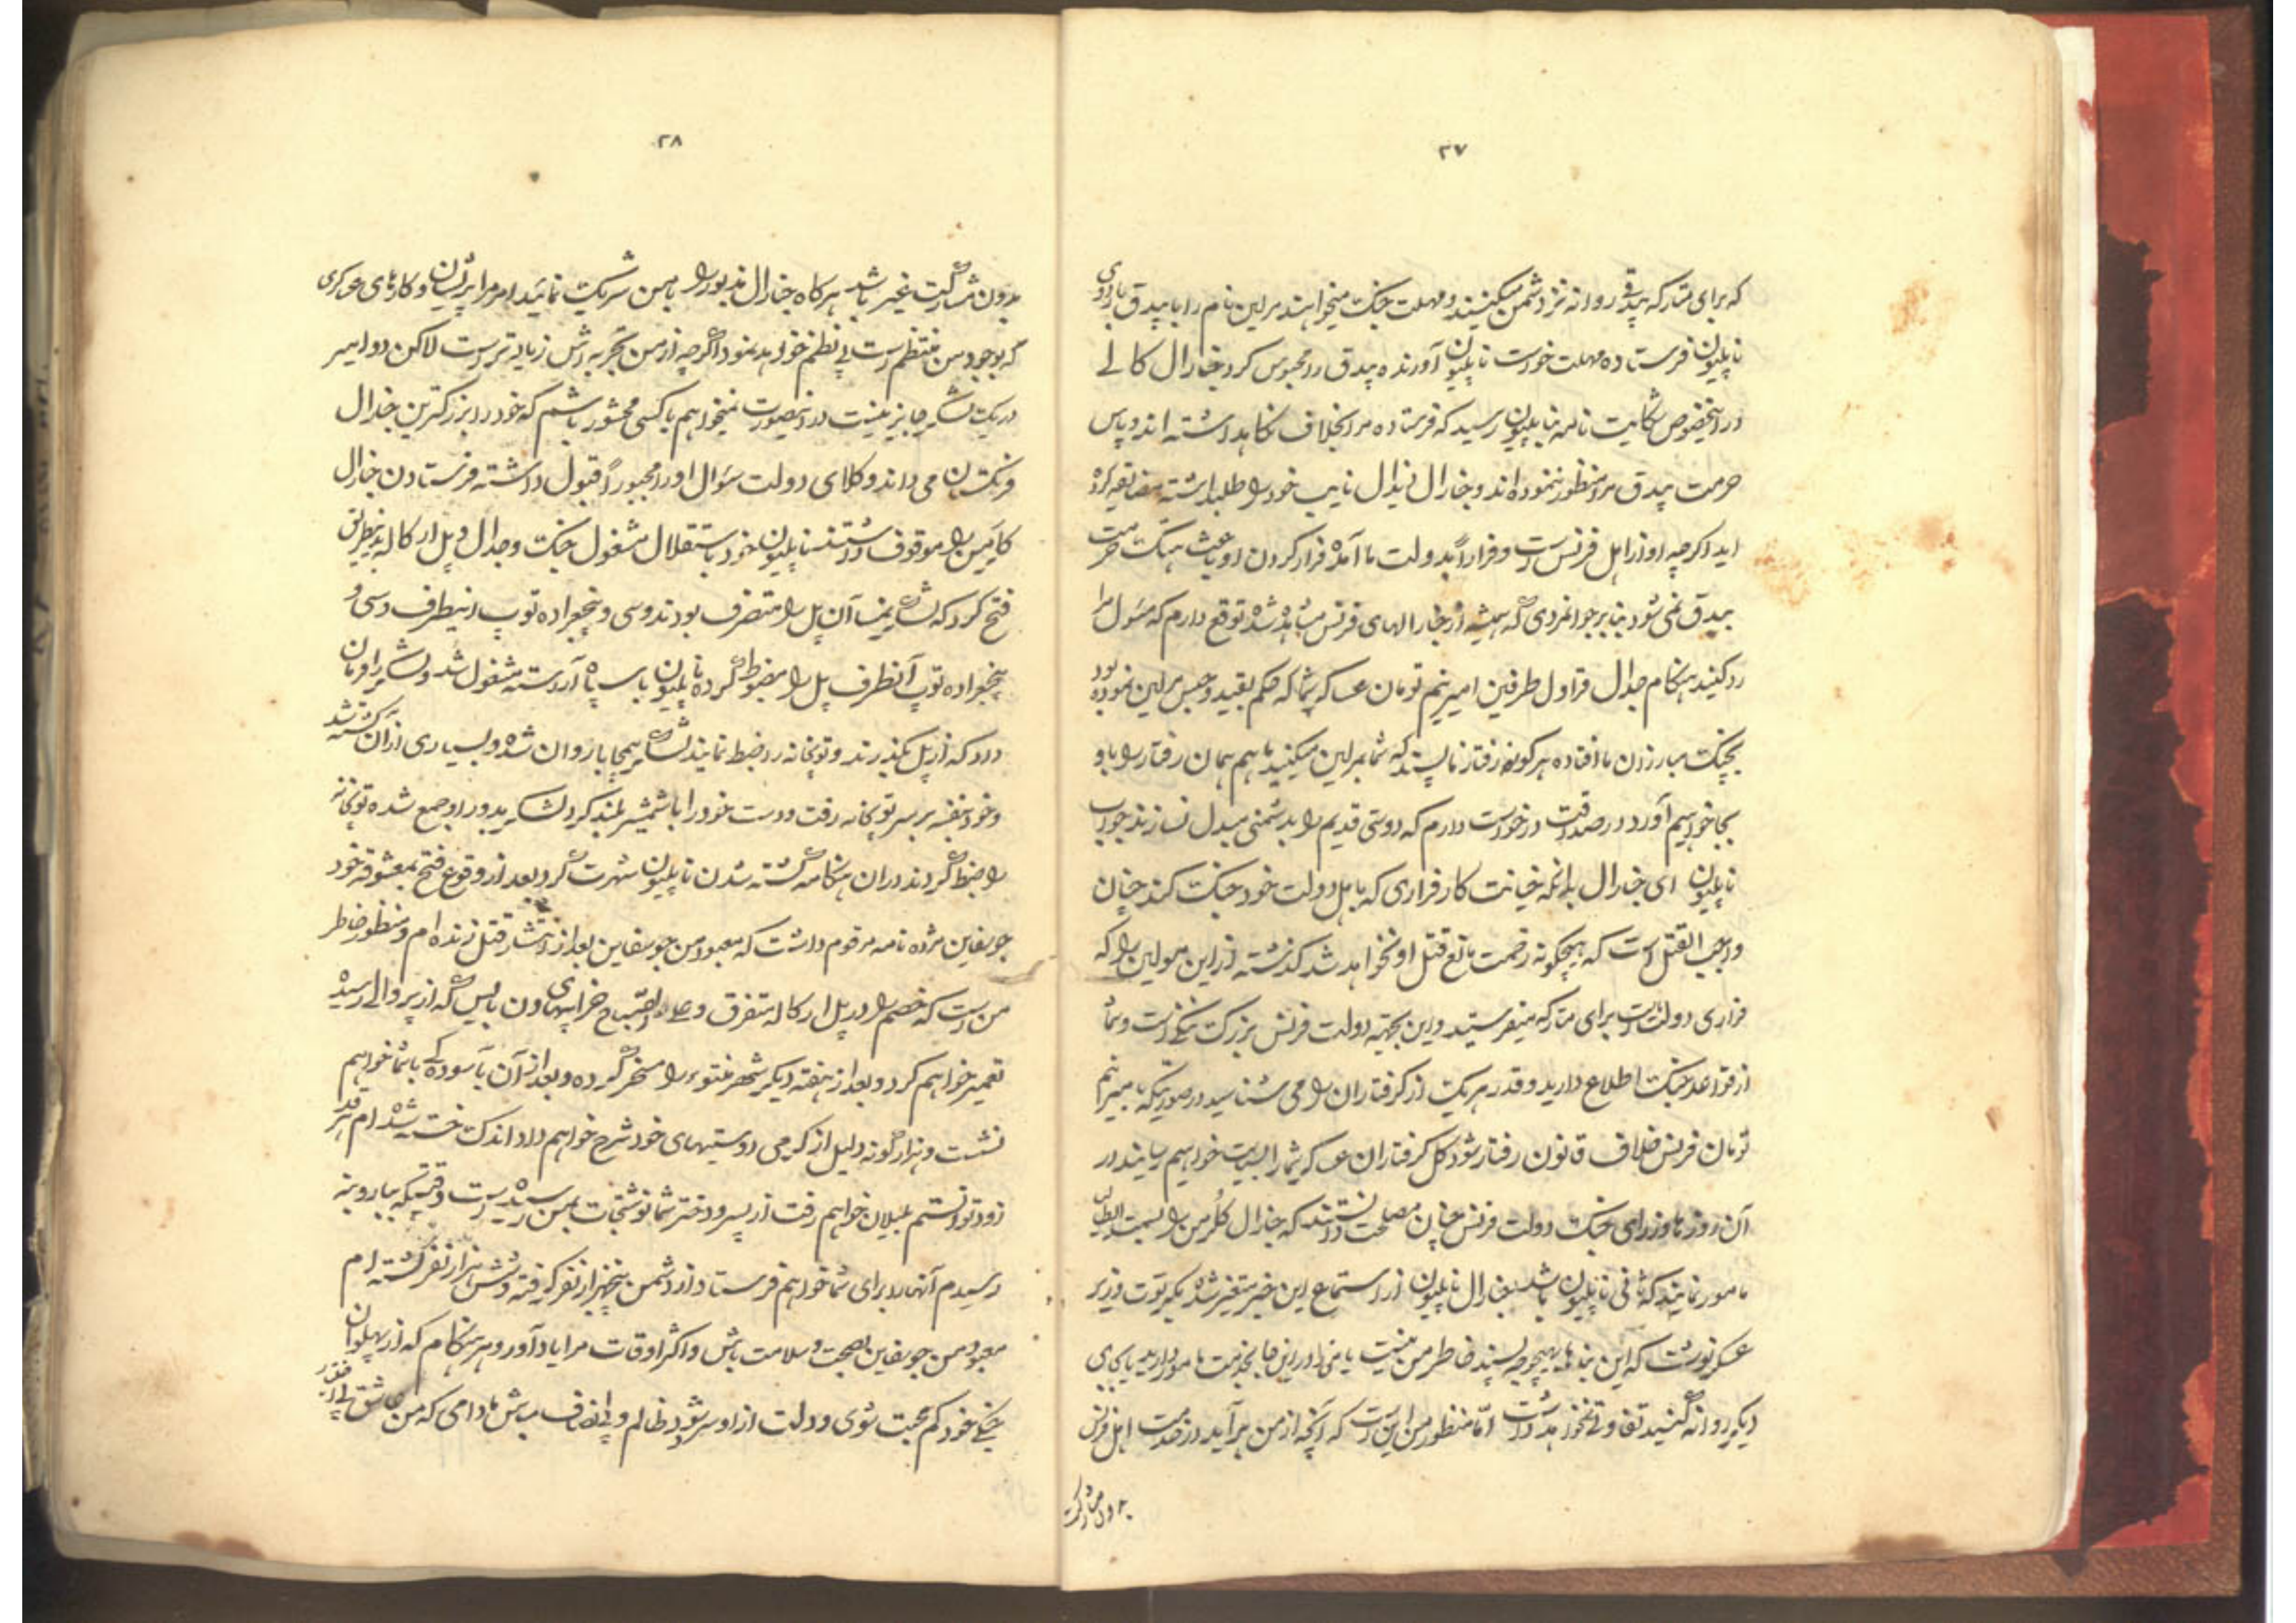 ۲۷
که برای متارکه بیدقی روانه نزد دشمن میکنند و مهلت جنگ میخواهند مرلین نام را با بیدق باردوی
ناپلیون فرستاده مهلت خواست ناپلیون آورنده بیدق را محبوس کرد جنارال کالی
در اینخصوص شکایت نامه بناپلیون رسید که فرستاده مرا بخلاف نگاهداشته اند و پاس
حرمت بیدق مرا منظور ننموده اند و جنارال نایب خود را طلبداشته مضایقه کرده
اید اگرچه او از اهل فرنس است و فراراً بدولت ما آمده فرار کردن او باعث هتک حرمت
بیدق نمی شود بنابر جوانمردی که همیشه از جنارالهای فرنس مشاهده شده توقع دارم که مسول مرا
رد نکنید هنگام جدال قراول طرفین امیر پنج تومان عساکر شما که حکم بقید و حبس مرلین نموده بود
بچنگ مبارزان ما افتاده هرگونه رفتار ناپسند که شما بمرلین میکنید ما هم همان رفتار را با او
بجا خواهیم آورد و در صداقت درخواست دارم که دوستی قدیم را بدشمنی مبدل نسازند جواب
ناپلیون ای جنارال بدانکه خیانت کار فراری که با اهل دولت خود جنگ کند چنان
واجب القتل است که هیچگونه زحمت مانع قتل او نخواهد شد گذشته از این مولین را که
فراری دولت است برای متارکه میفرستید و این بجهته دولت فرنس بزرگ ننگی است و شما
از قواعد جنگ اطلاع دارید و قدر هر یک از گرفتاران را می شناسید در صورتیکه بامیر پنج
تومان فرنس خلاف قانون رفتار شود کل گرفتاران عساکر شما را بسیاست خواهیم رسانید در
آن روزها وزرای جنگ دولت فرنس چنان مصلحت دانستند که جنارال کلرمن را بسمت ایطالیا
مامور نمایند که ثانی ناپلیون باشد جنارال ناپلیون از استماع این خبر متغیر شده بکربوت وزیر
عسکر نوشت که این بنا بهیچوجه پسند خاطر من نیست یا مرا در این جا بخدمت مامور دارید یا بجای
دیگر روانه کنید تفاوتی نخواهد داشت امّا منظور من این است که آنچه از من برآید در خدمت اهل فرنس
بدون مشارکت
۲۸
بدون مشارکت غیر باشد هرگاه جنارال مذبور را با من شریک نمائید امر مرا پریشان و کارهای عسکری
که بوجود من منتظم است بی نظم خواهد نمود اگرچه از من تجربه اش زیادتر است لاکن دو امیر
در یک لشکر جایز نیست در اینصورت نمیخواهم با کسی محشور باشم که خود را بزرگترین جنرال
فرنگستان می داند وکلای دولت سؤال او را مجبوراً قبول داشته فرستادن جنارال
کلرمن را موقوف داشتند ناپلیون خود باستقلال مشغول جنگ و جدال و پل ارکاله بدینطریق
فتح کرد که لشکر نمسا آن پل را متصرف بودند و سی و پنجعراده توپ از اینطرف و سی و
پنجعراده توپ آنطرف پل را مضبوط کرده ناپلیون با سپاه آراسته مشغول شد و لشکر را فرمان
داد که از پل بگذرند و توپخانه را ضبط نمایند لشکر بیمحابا روان شده و بسیاری از آن کشته شد
و خود بنفسه بر سر توپخانه رفت و دست خود را با شمشیر بلند کرد لشکر بدور او جمع شده توپخانه
را ضبط کردند در آن هنگامه کشته شدن ناپلیون شهرت کرد بعد از وقوع فتح بمعشوقه خود
جوسفاین مژده نامه مرقوم داشت که معبود من جوسفاین بعد از انتشار قتل زنده ام و منظور خاطر
من است که خصم را در پل ارکاله متفرق و علی الصباح خرابیهای دون باپیس که از پروالی رسیده
تعمیر خواهم کرد و بعد از هفته دیگر شهر منتوء را مسخر کرده و بعد از آن بآسودگی با شما خواهم
نشست و هزار گونه دلیل از گرمی دوستیهای خود شرح خواهم داد اندک خسته شده ام هر قدر
زودتر توانستم بمیلان خواهم رفت از پسر و دختر شما نوشتجات بمن رسیده است وقتیکه
رسیدم آنها را برای شما خواهم فرستاد از دشمن پنجهزار نفر گرفته و شش هزار نفر کشته ام
معبود من جوسفاین بصحت و سلامت باش و اکثر اوقات مرا یاد آور و هر هنگام که از پهلوان
جنگی خود کم محبت شوی و دلت از او سرد شود ظالم و بی انصاف مباش مادامی که من عاشق بی